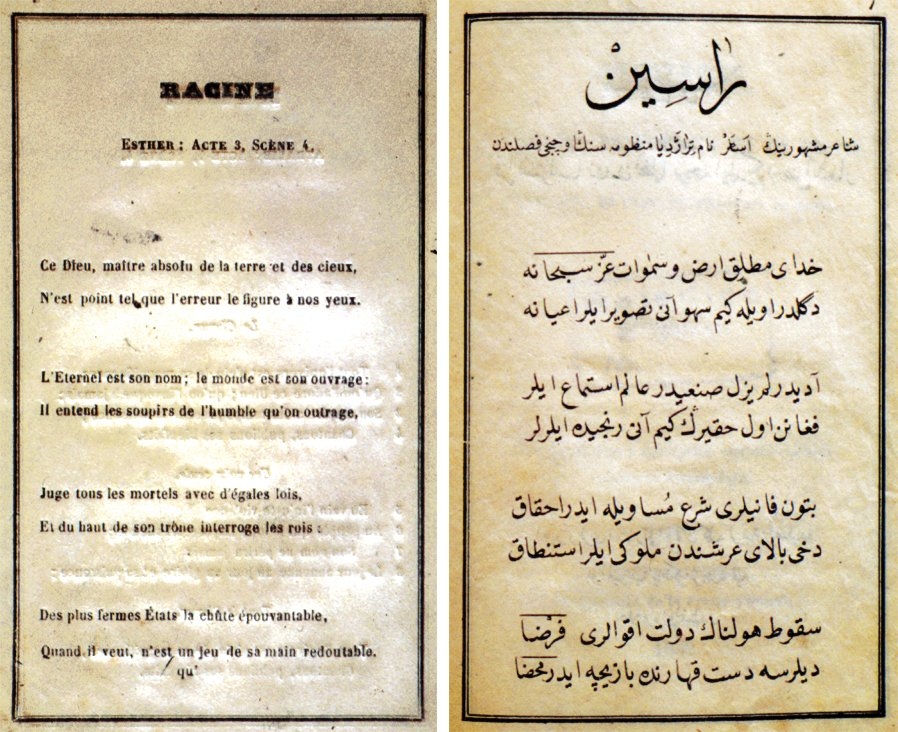 RACINE
ESTHER : ACTE 3, SCÈNE 4.
Ce Dieu, maître absolu de la terre et des cieux,
N'est point tel que l'erreur le figure à nos yeux.
L'Eternel est son nom ; le monde est son ouvrage :
Il entend les soupirs de l'humble qu'on outrage,
Juge tous les mortels avec d'égales lois,
Et du haut de son trône interroge les rois :
Des plus fermes États la chûte épouvantable,
Quand il veut, n'est un jeu de sa main redoutable.
qu'
راسِين
شاعر مشهورينڭ اَستَرْ نام تراژديا منظومه سنڭ اوچنجی فصلندن
خدای مطلق ارض و سمٰوات عزّ سبحانه
دگلدر اويله كيم سهو آنی تصوير ايلر اعيانه
آديدر لم يزل صنعيدر عالم استماع ايلر
فغانن اول حقيرڭ كيم آنی رنجيده ايلرلر
بتون فانيلری شرع مُساويله ايدر احقاق
دخی بالای عرشندن ملوكی ايلر استنطاق
سقوط هولناك دولت اقوالری فرْضا
ديلرسه دست قهارنده بازيچه ايدر محضا